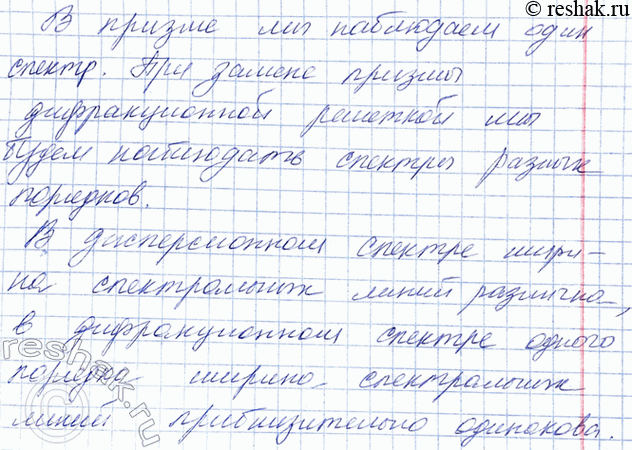 © reshak.ru
В призме мы наблюдаем один
спектр. При замене призмы
дифракционной решеткой мы
будем наблюдать спектры разных
порядков.
В дисперсионном спектре шири-
на спектральных линий различна,
в дифракционном спектре одного
порядка ширина спектральных
линий приблизительно одинакова.
reshak.ru